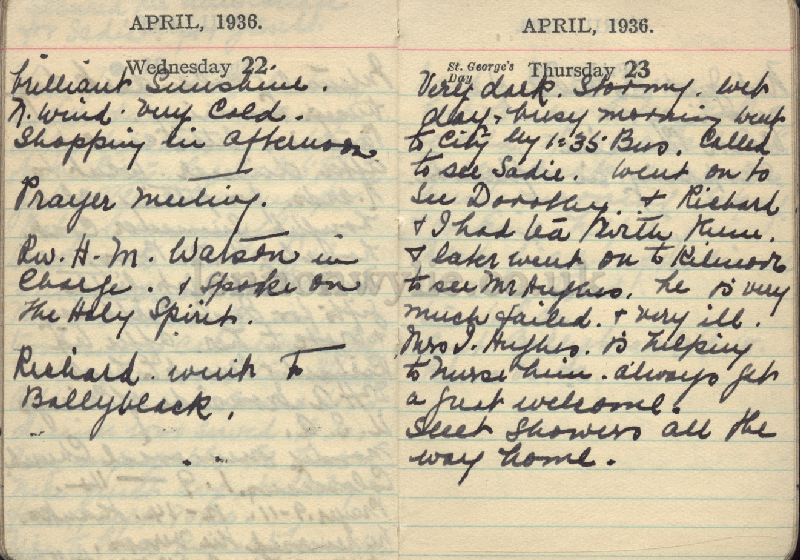 APRIL, 1936.
Wednesday 22.
brilliant Sunshine.
N. wind. very Cold.
Shopping in afternoon
Prayer meeting.
Rev. H. M. Watson in
Charge. & spoke on
The Holy Spirit.
Richard went to
Ballyblack.
APRIL, 1936.
St. George's
Day
Thursday 23
Very dark. Stormy. wet
day, busy morning went
to City by 1.35 Bus. Called
to see Sadie. went on to
see Dorothy. & Richard
& I had tea with them.
& later went on to Kilmore
to see Mr Hughes. he is very
much failed. & very ill.
Mrs J. Hughes. is helping
to nurse him. always get
a great welcome.
Sleet Showers all the
way home.